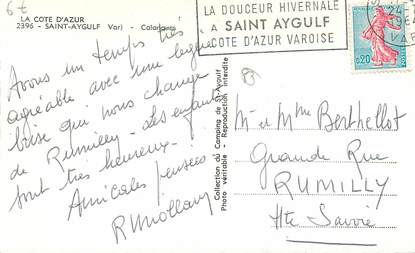 6€
LA COTE D'AZUR
2396 - SAINT-AYGULF (Var) - Calanques
LA DOUCEUR HIVERNALE
A SAINT AYGULF
COTE D'AZUR VAROISE
0,20
Avons un temps très
agréable avec une légère
brise qui nous change
de Rumilly - Les enfants
sont très heureux -
Amicales pensées
Collection du Camping de St-Aygulf
Photo véritable - Reproduction interdite
M et Mme Berthellot
Grande Rue
RUMILLY
Hte Savoie